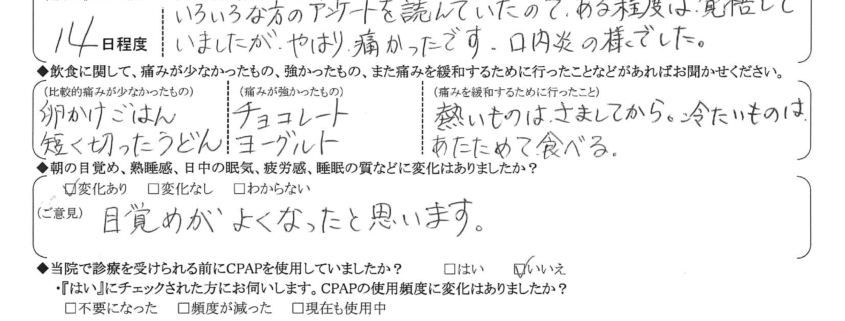 いろいろな方のアンケートを読んでいたので、ある程度は、覚悟して
14日程度 いましたが、やはり、痛かったです。口内炎の様でした。
◆飲食に関して、痛みが少なかったもの、強かったもの、また痛みを緩和するために行ったことなどがあればお聞かせください。
(比較的痛みが少なかったもの) (痛みが強かったもの) (痛みを緩和するために行ったこと)
卵かけごはん チョコレート 熱いものは、さましてから。冷たいものは、
短く切ったうどん ヨーグルト あたためて食べる。
◆朝の目覚め、熟睡感、日中の眠気、疲労感、睡眠の質などに変化はありましたか？
☑変化あり □変化なし □わからない
(ご意見) 目覚めが、よくなったと思います。
◆当院で診療を受けられる前にCPAPを使用していましたか？ □はい ☑いいえ
・『はい』にチェックされた方にお伺いします。CPAPの使用頻度に変化はありましたか？
□不要になった □頻度が減った □現在も使用中